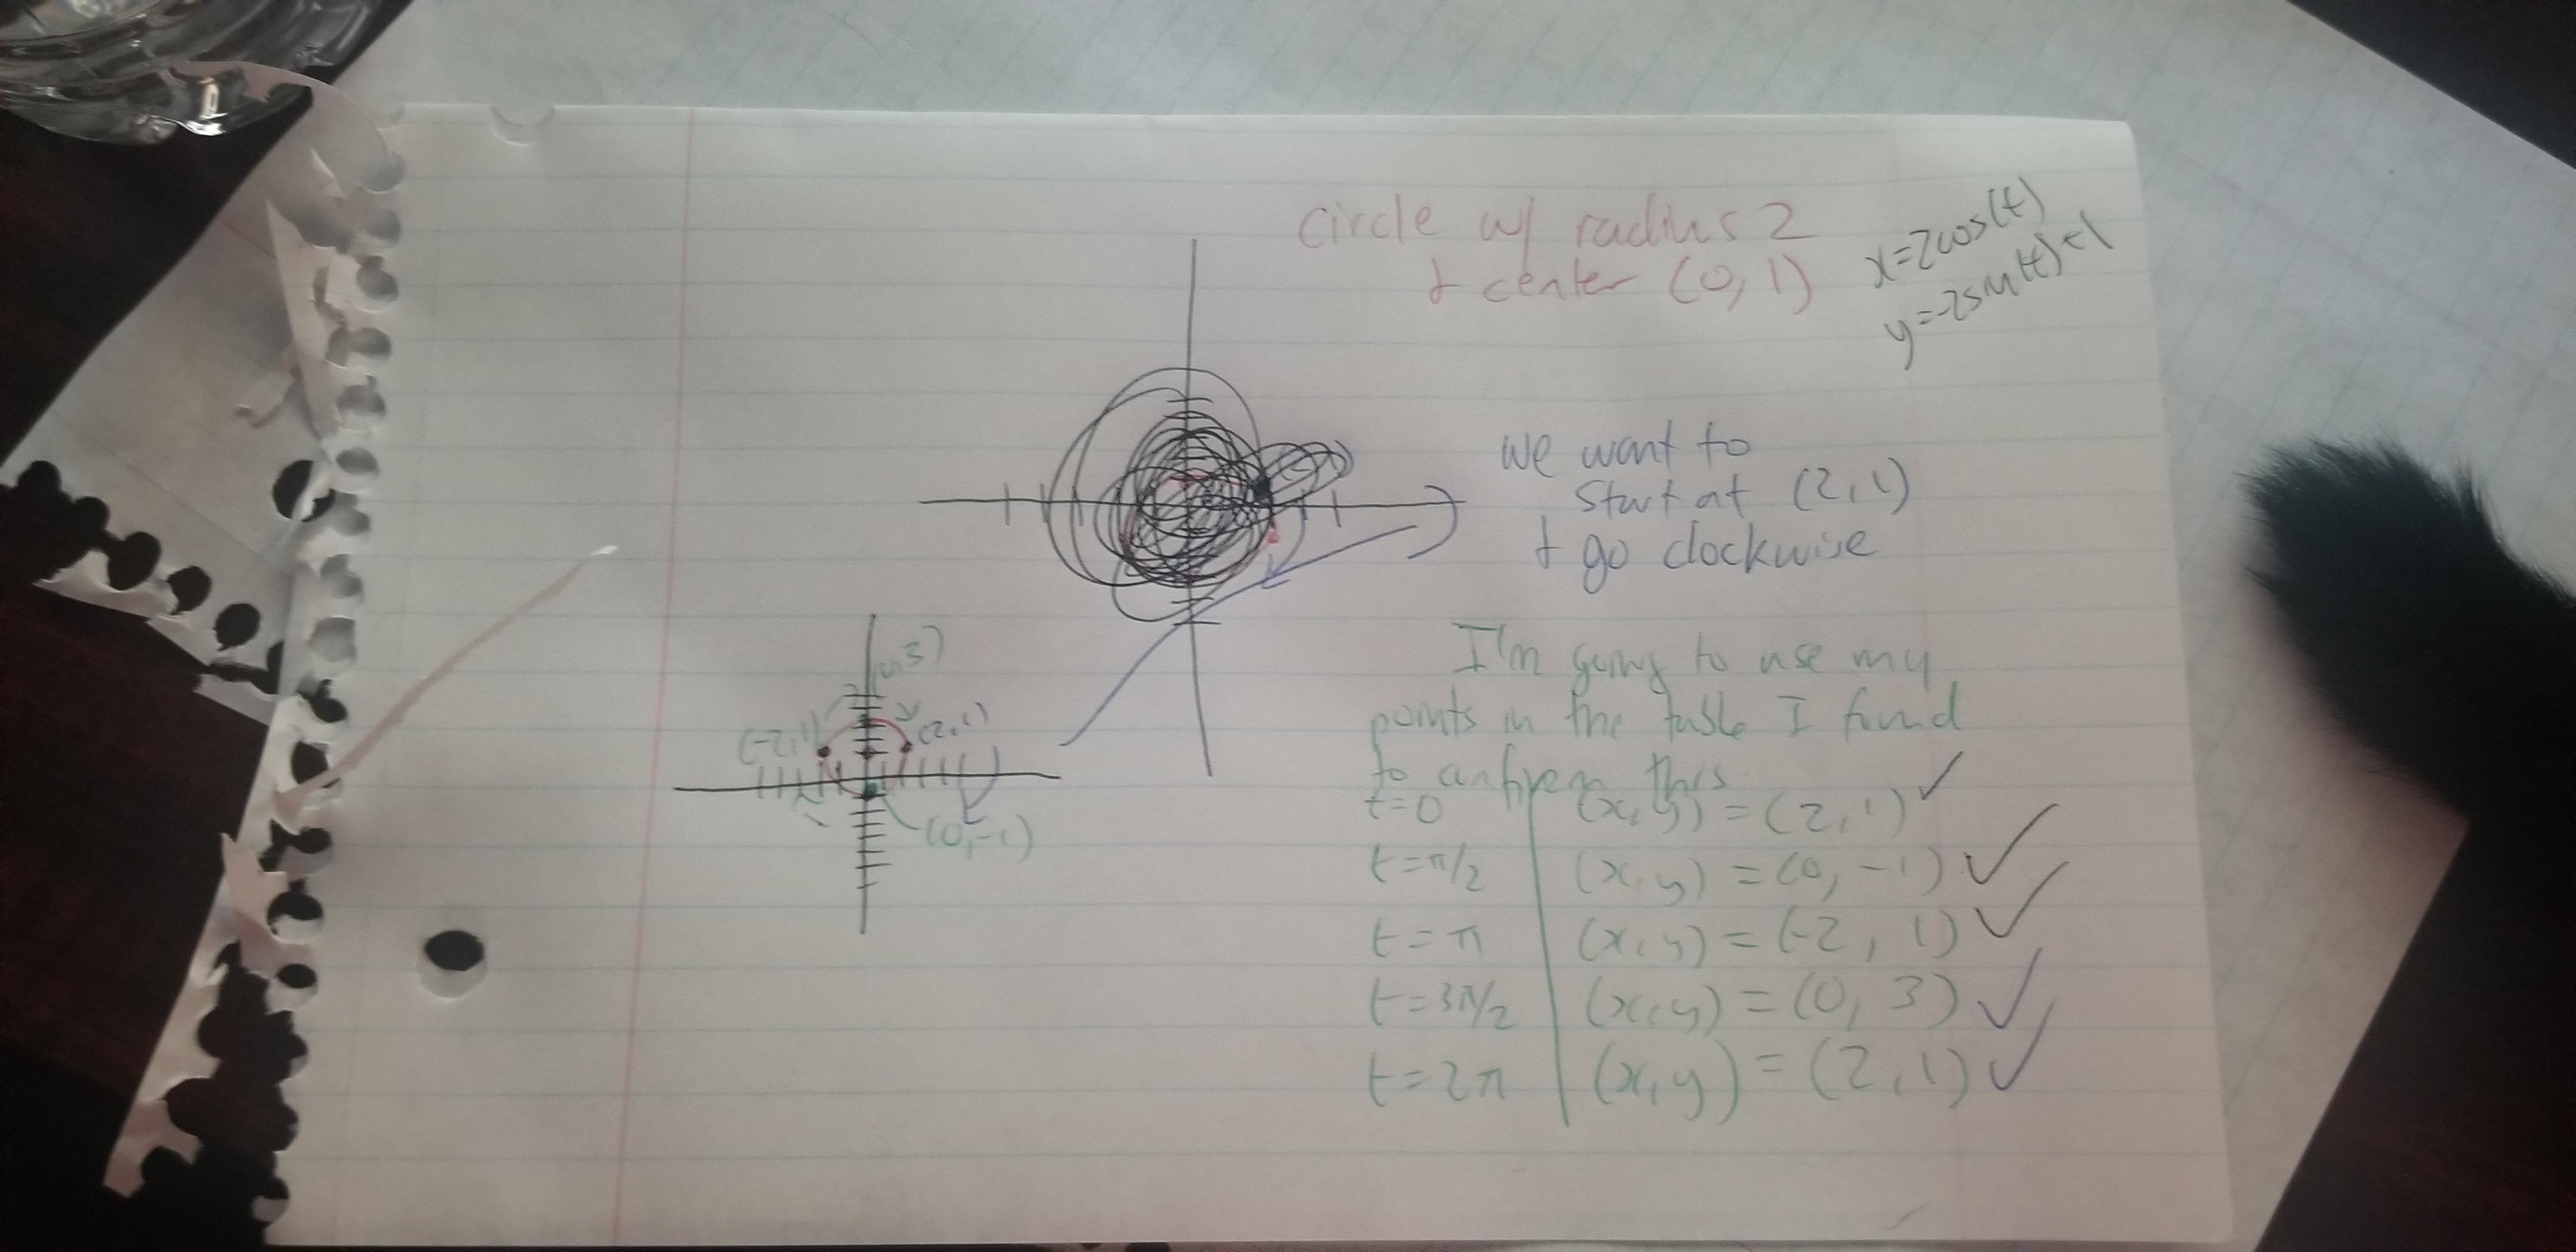 circle w/ radius 2
+ center (0, 1)
x=2cos(t)
y=-2sin(t)+1
we want to
start at (2, 1)
+ go clockwise
I'm going to use my
points in the table I found
to confirm this
t=0 (x, y) = (2, 1) ✓
t=π/2 (x, y) = (0, -1) ✓
t=π (x, y) = (-2, 1) ✓
t=3π/2 (x, y) = (0, 3) ✓
t=2π (x, y) = (2, 1) ✓
(0, 3)
(-2, 1)
(2, 1)
(0, -1)